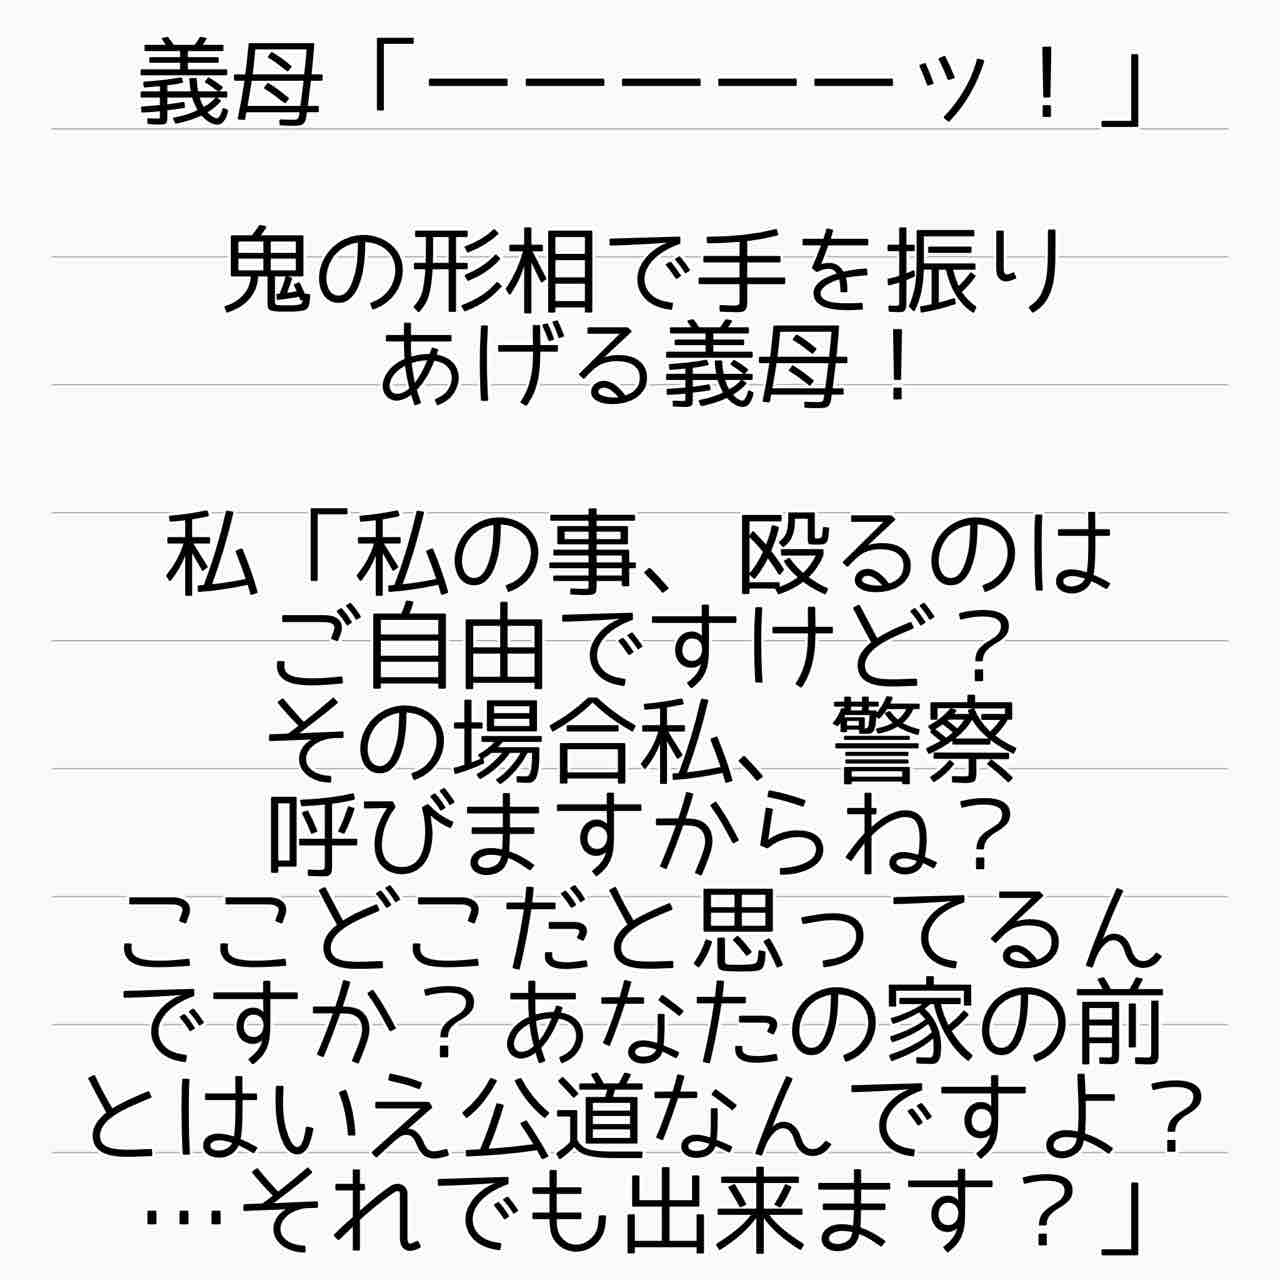 義母「ーーーーーッ！」
鬼の形相で手を振り
あげる義母！
私「私の事、殴るのは
ご自由ですけど？
その場合私、警察
呼びますからね？
ここどこだと思ってるん
ですか？あなたの家の前
とはいえ公道なんですよ？
…それでも出来ます？」